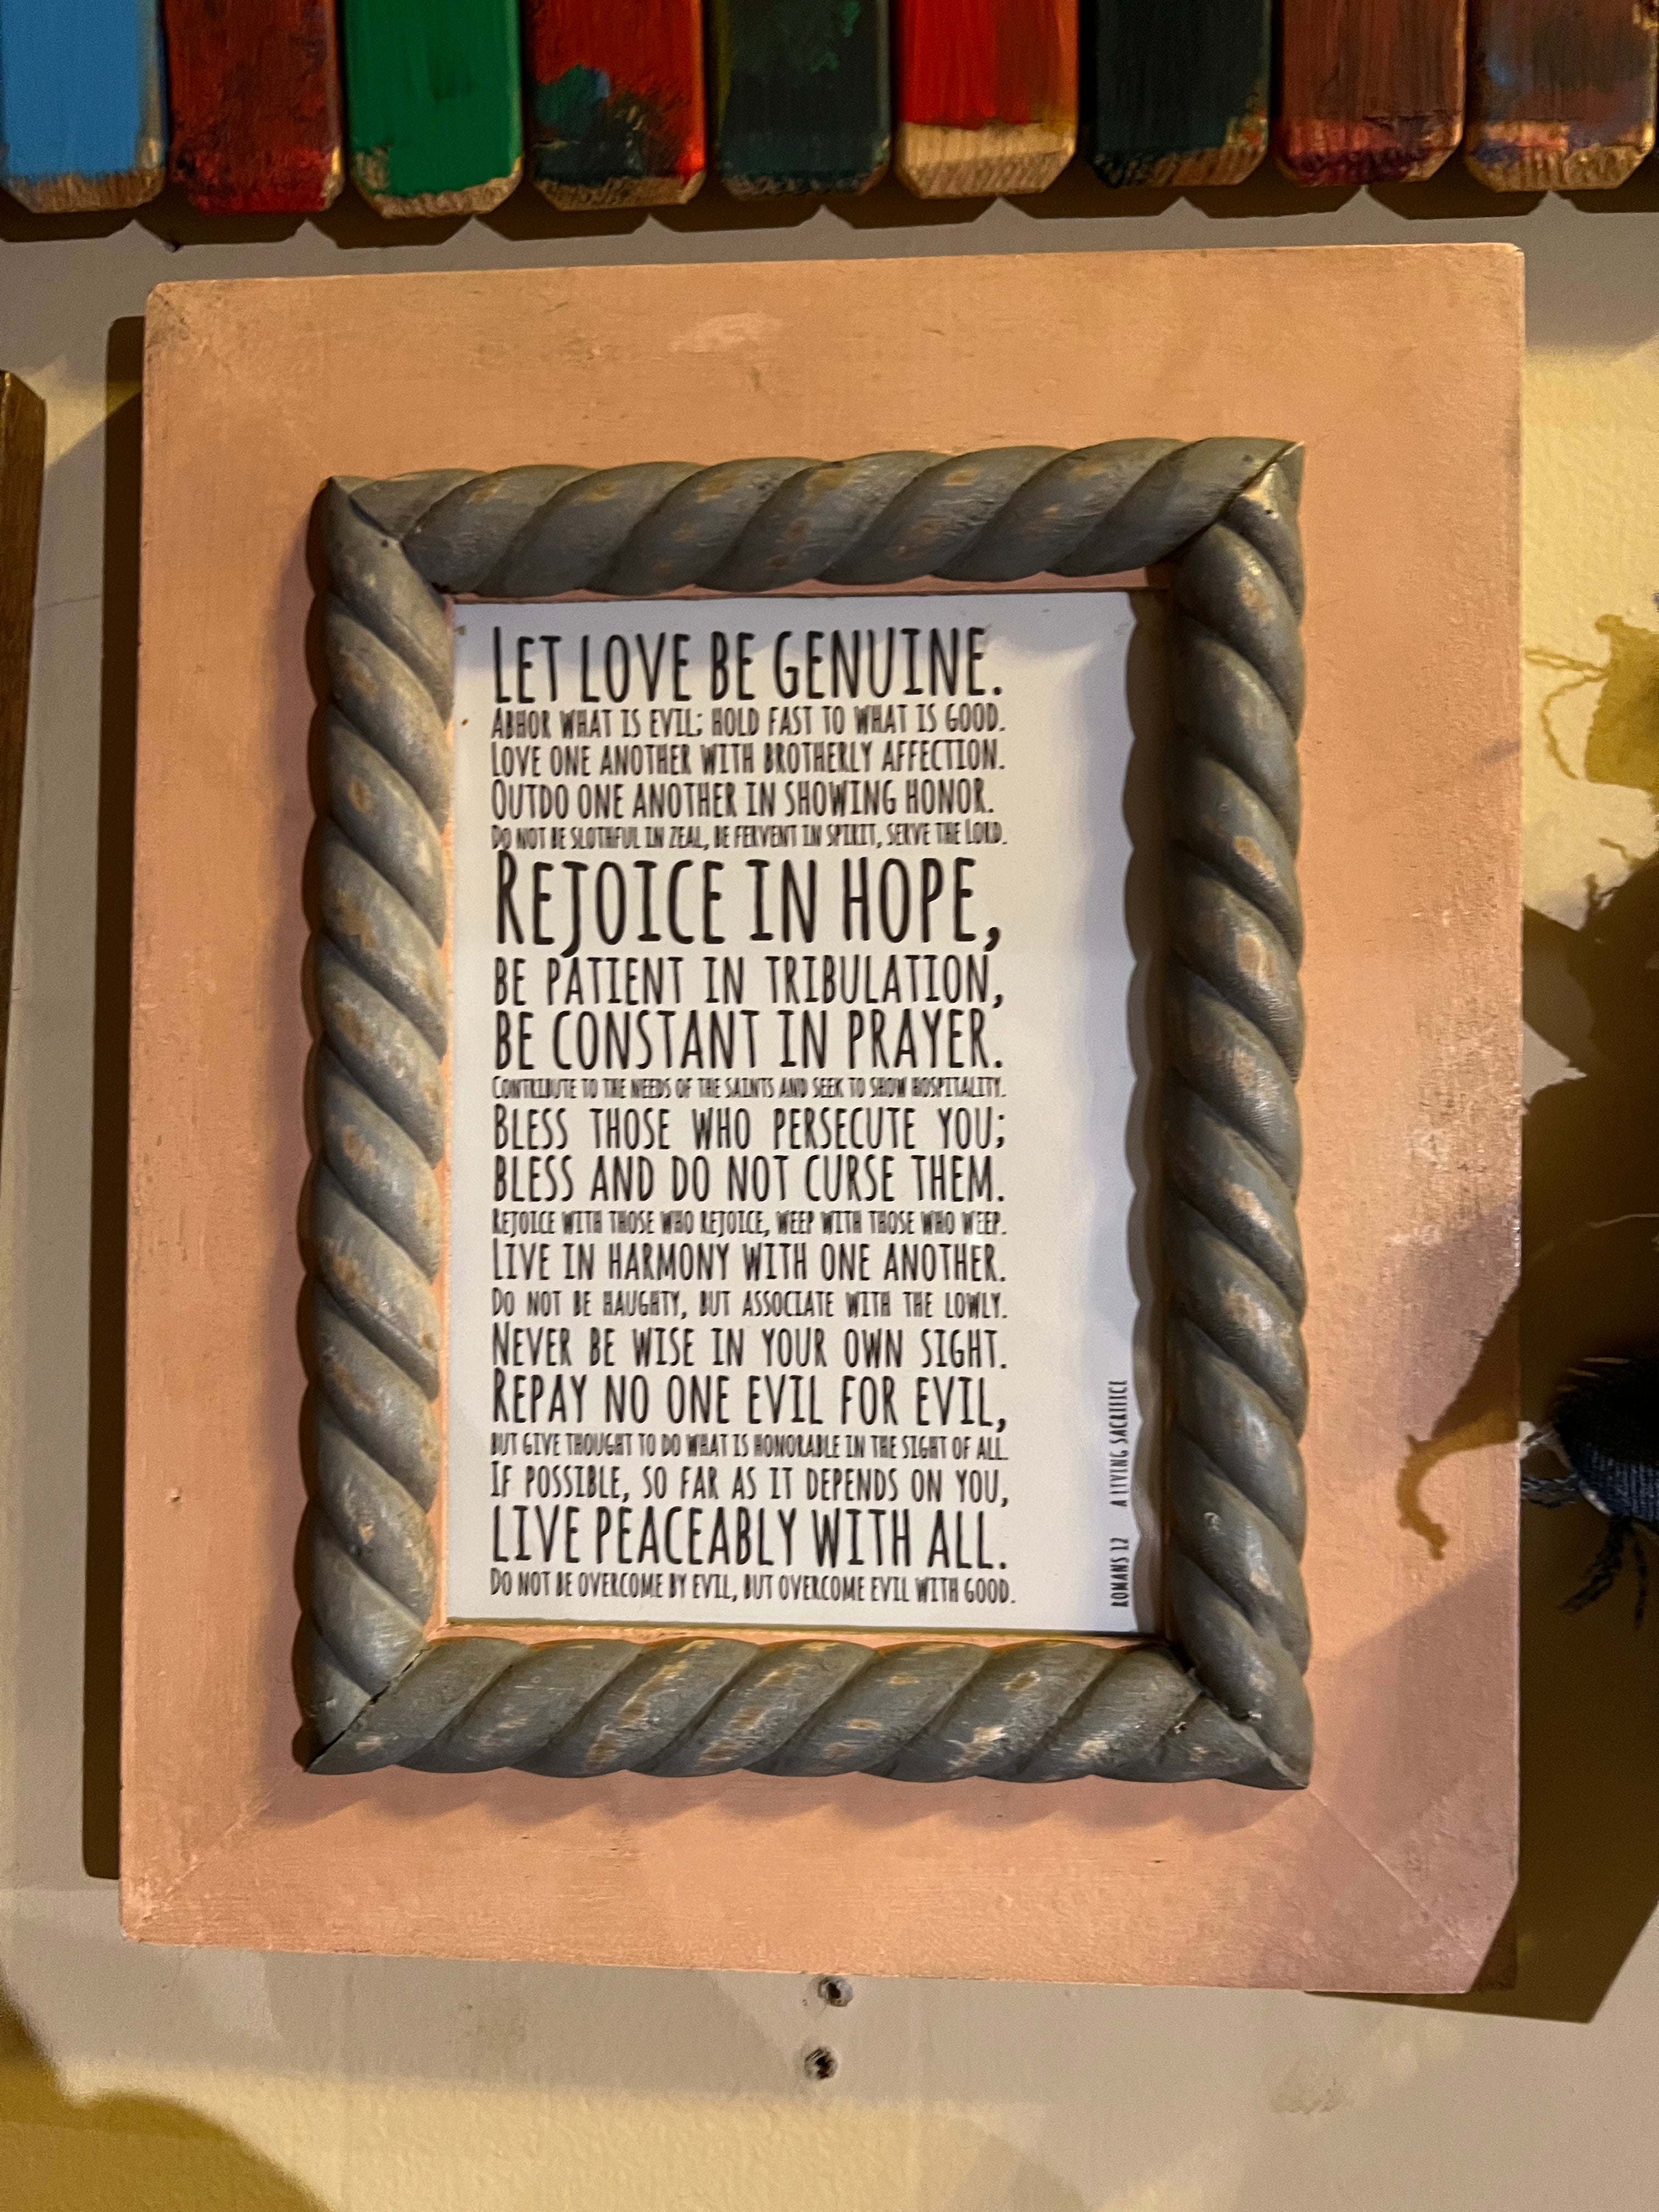 LET LOVE BE GENUINE.
ABHOR WHAT IS EVIL; HOLD FAST TO WHAT IS GOOD.
LOVE ONE ANOTHER WITH BROTHERLY AFFECTION.
OUTDO ONE ANOTHER IN SHOWING HONOR.
DO NOT BE SLOTHFUL IN ZEAL, BE FERVENT IN SPIRIT, SERVE THE LORD.
REJOICE IN HOPE,
BE PATIENT IN TRIBULATION,
BE CONSTANT IN PRAYER.
CONTRIBUTE TO THE NEEDS OF THE SAINTS AND SEEK TO SHOW HOSPITALITY.
BLESS THOSE WHO PERSECUTE YOU;
BLESS AND DO NOT CURSE THEM.
REJOICE WITH THOSE WHO REJOICE, WEEP WITH THOSE WHO WEEP.
LIVE IN HARMONY WITH ONE ANOTHER.
DO NOT BE HAUGHTY, BUT ASSOCIATE WITH THE LOWLY.
NEVER BE WISE IN YOUR OWN SIGHT.
REPAY NO ONE EVIL FOR EVIL,
BUT GIVE THOUGHT TO DO WHAT IS HONORABLE IN THE SIGHT OF ALL.
IF POSSIBLE, SO FAR AS IT DEPENDS ON YOU,
LIVE PEACEABLY WITH ALL.
DO NOT BE OVERCOME BY EVIL, BUT OVERCOME EVIL WITH GOOD.
ROMANS 12 A LIVING SACRIFICE